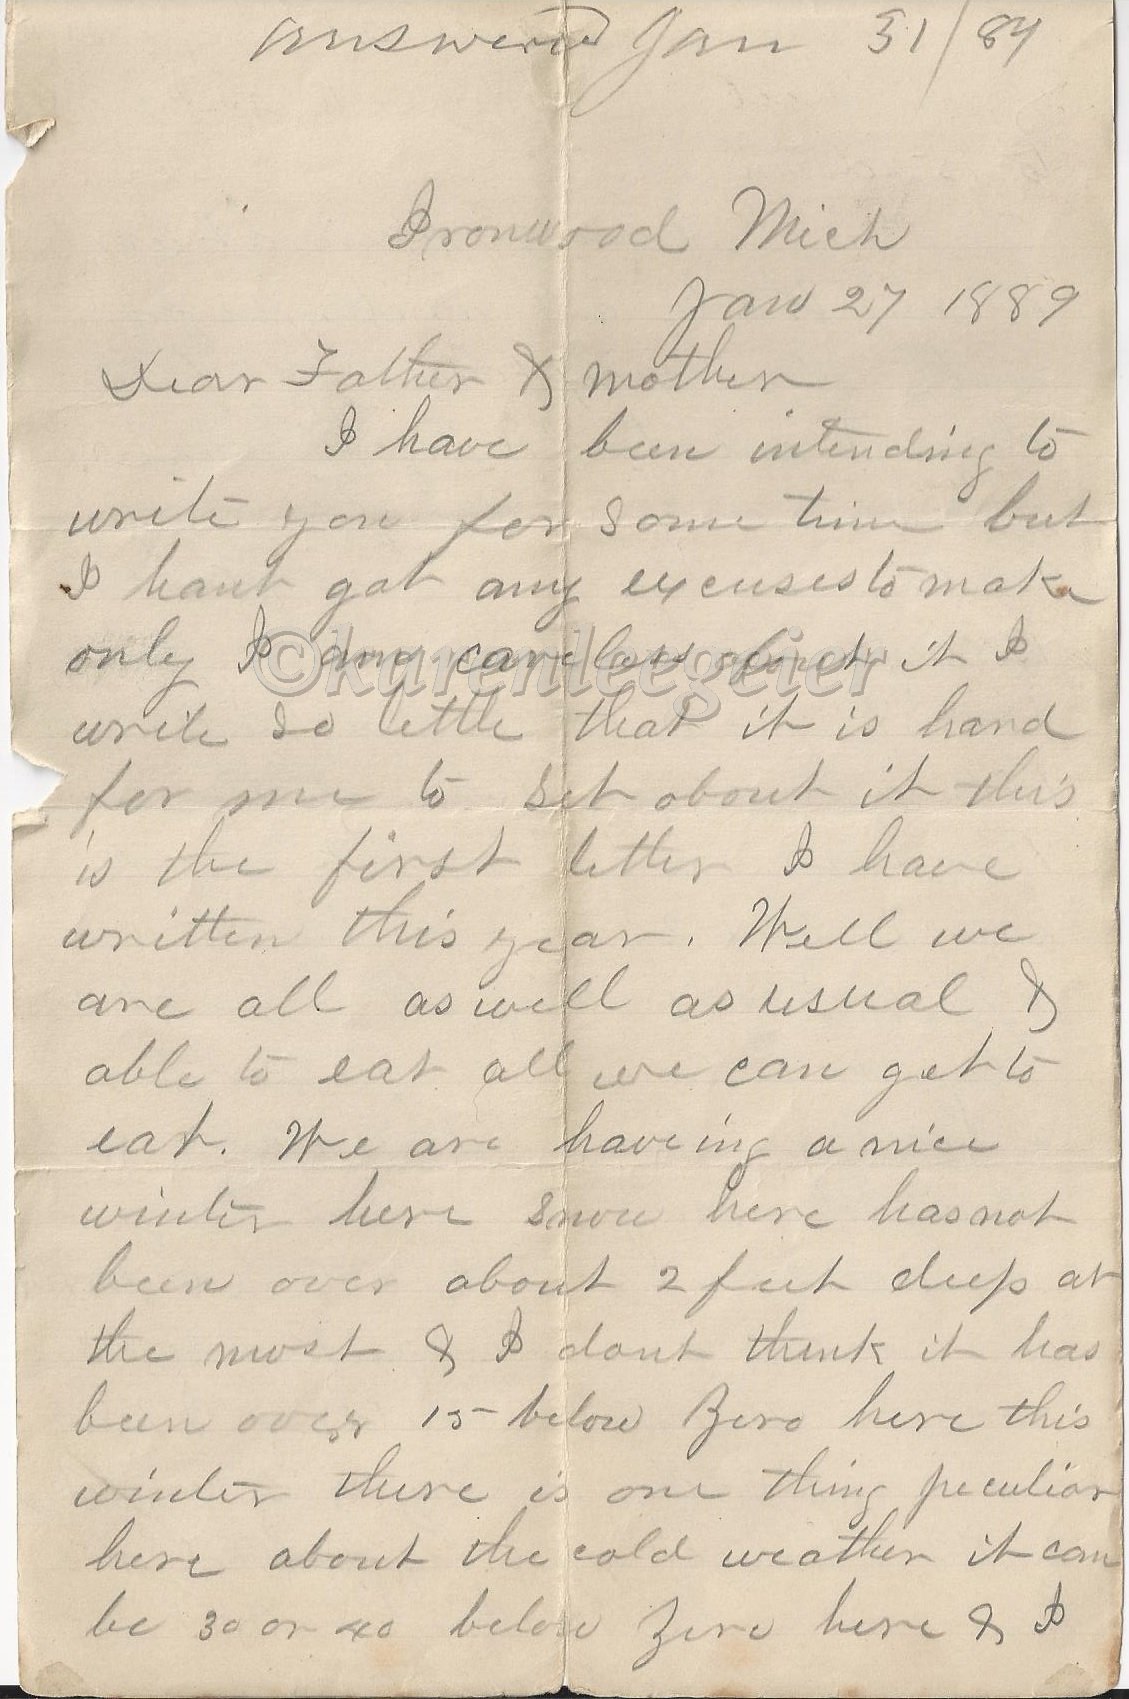 answered Jan 31/89
Ironwood Mich
Jan 27 1889
Dear Father & mother
I have been intending to
write you for some time but
I hant got any excuses to make
only I am careless about it I
write so little that it is hard
for me to set about it this
is the first letter I have
written this year. Well we
are all as well as usual &
able to eat all we can get to
eat. We are haveing a nice
winter here snow here has not
been over about 2 feet deep at
the most & I dont think it has
been over 15 below Zero here this
winter there is one thing peculiar
here about the cold weather it can
be 30 or 40 below Zero here & I
©karenleegeier